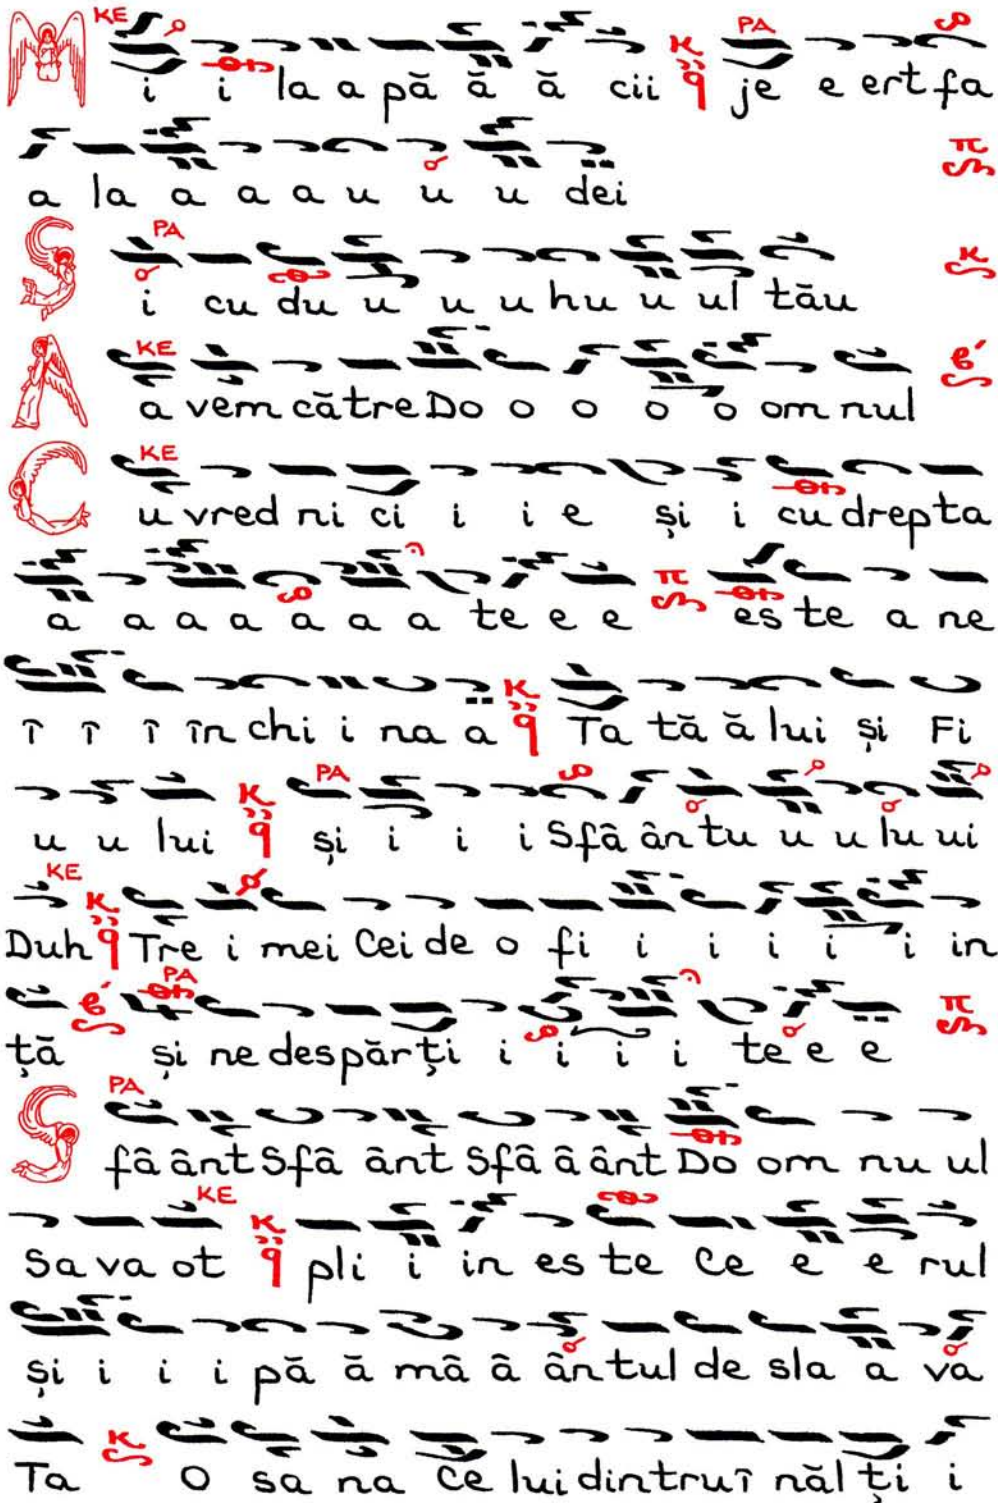 M i i la a pă ă ă cii je e ert fa
a la a a a u u u dei
S i cu du u u u hu u ul tău
A a vem către Do o o o o om nul
C u vred ni ci i i e și i cu drep ta
a a a a a a a te e e es te a ne
î î î în chi i na a Ta tă ă lui și Fi
u u lui și i i i Sfâ ân tu u u lu ui
Duh Tre i mei Cei de o fi i i i i i in
ță și ne des păr ți i i i i te e e
S fâ ânt Sfâ ânt Sfâ â ânt Do om nu ul
Sa va ot pli i in es te Ce e e rul
și i i i pă ă mâ â ân tul de sla a va
Ta O sa na Ce lui din tru î năl ți i